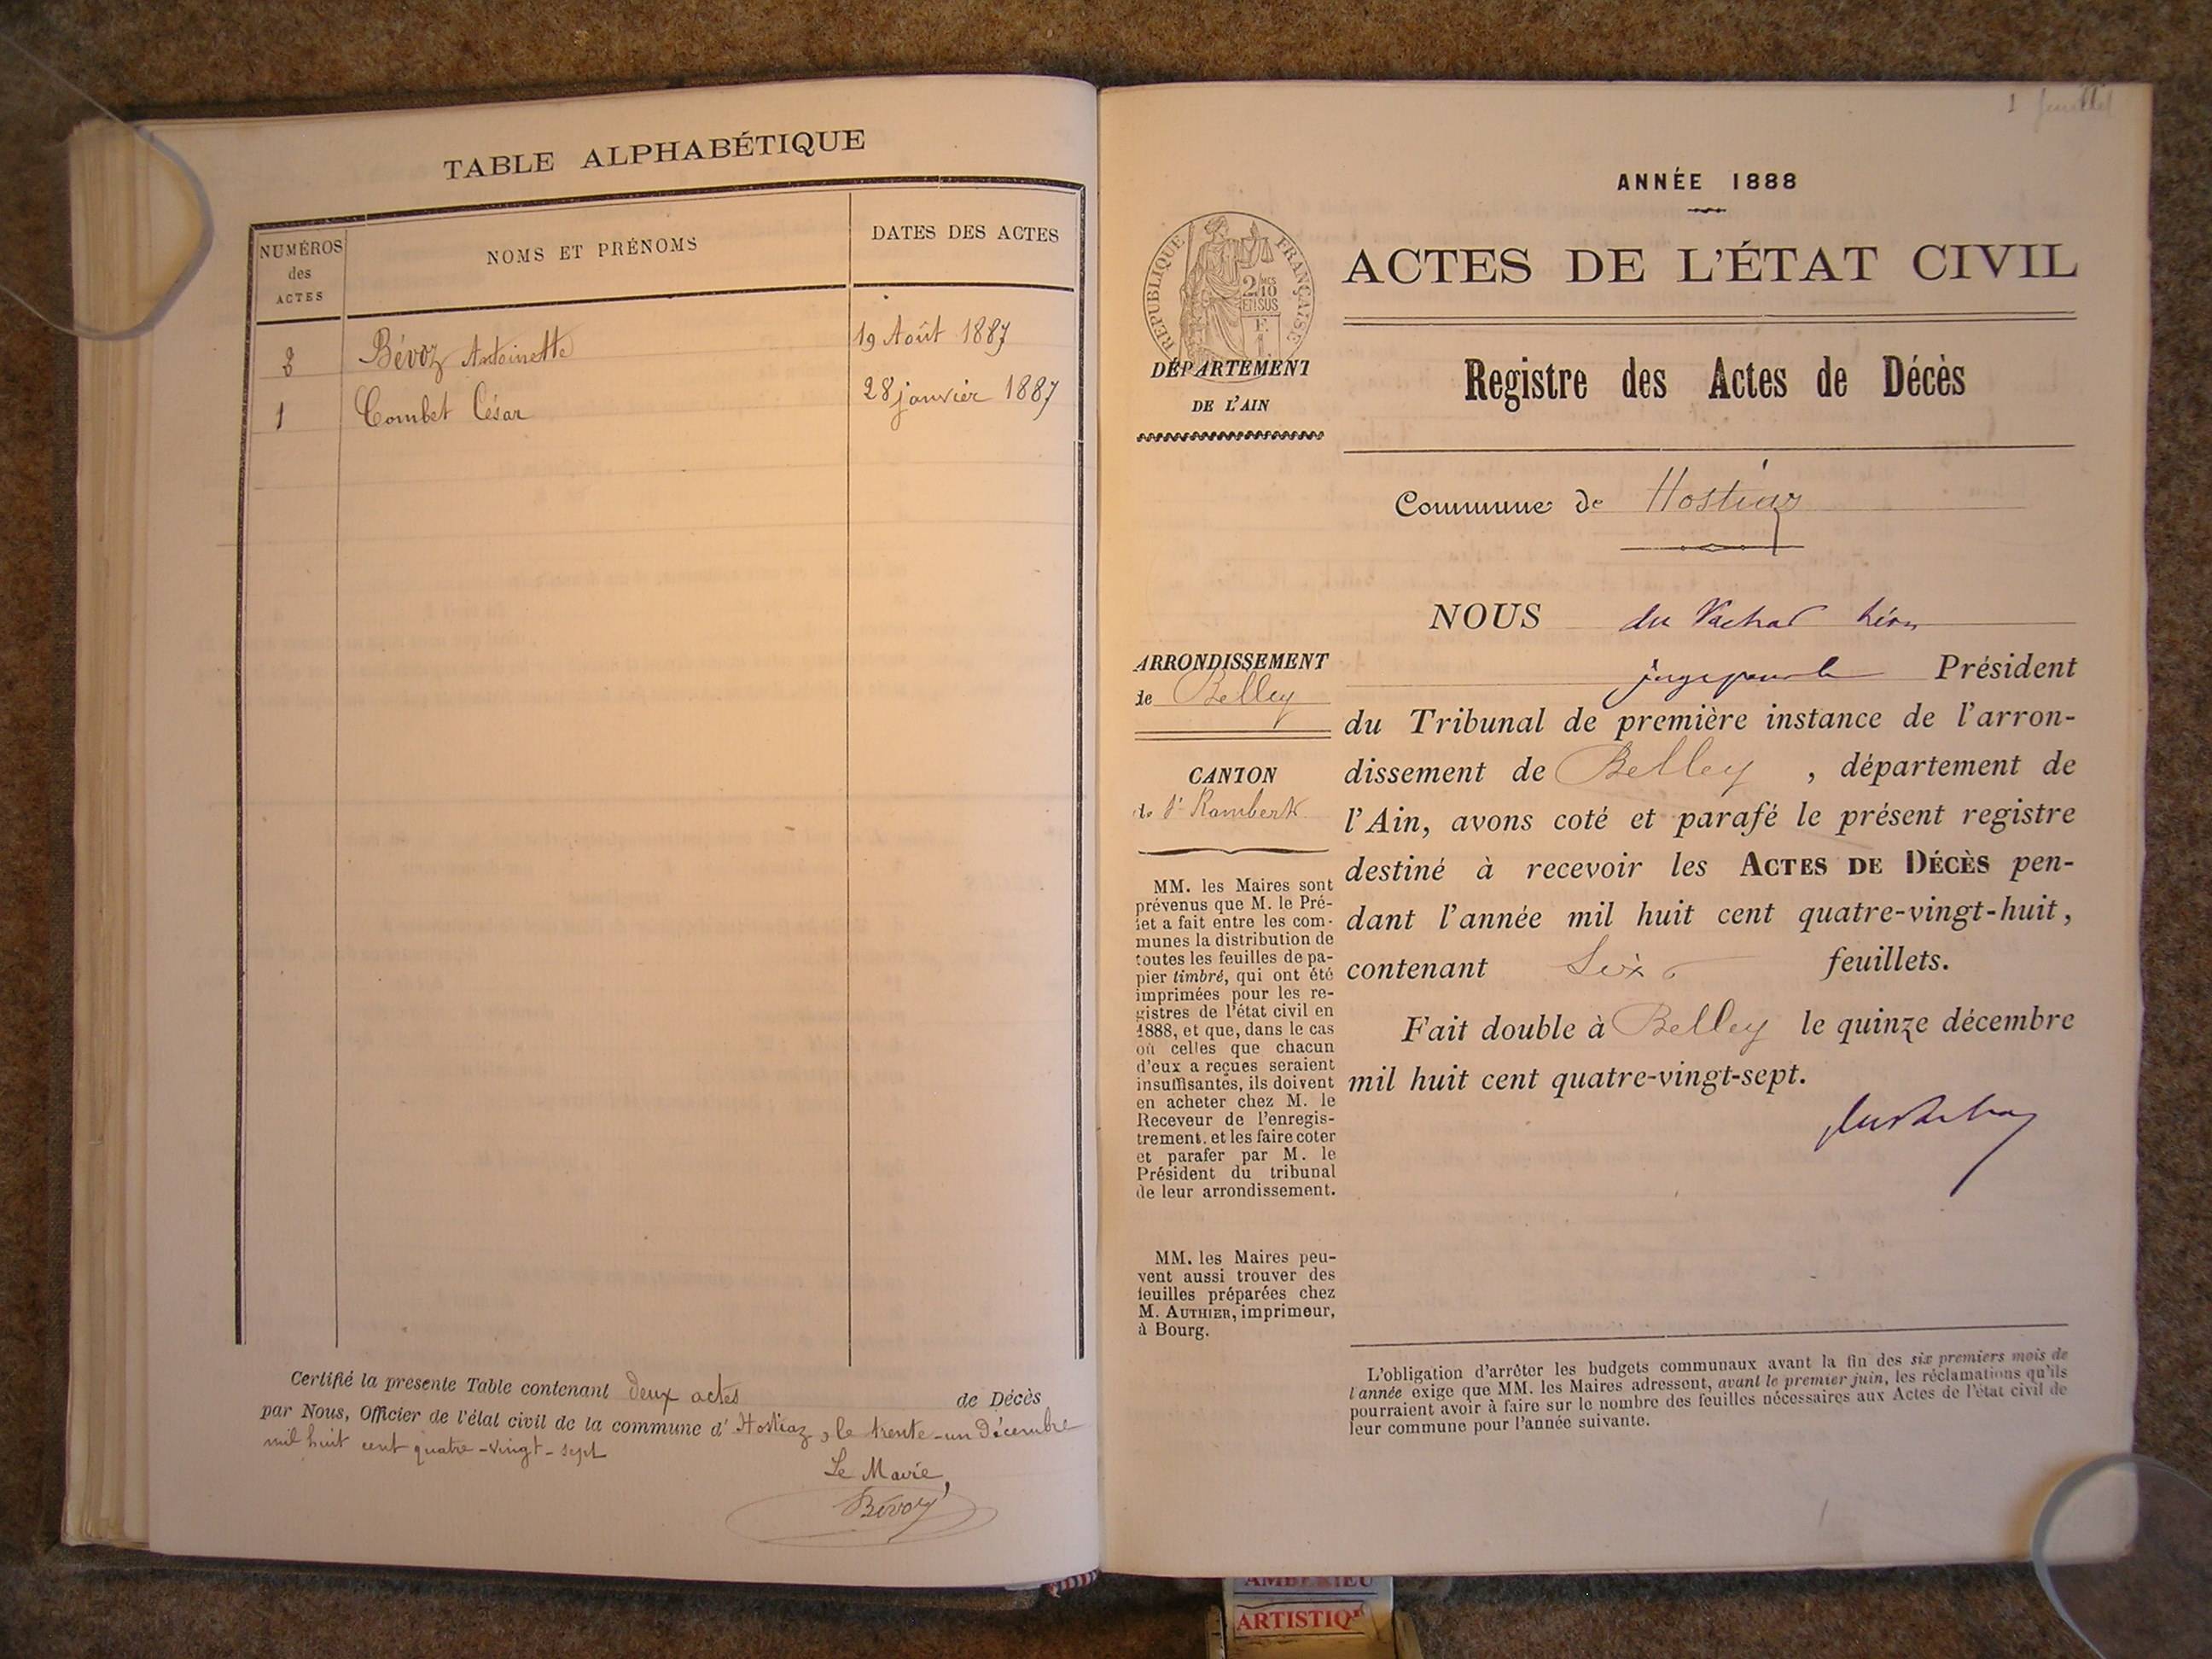 TABLE ALPHABÉTIQUE
NUMÉROS
des
ACTES
NOMS ET PRÉNOMS
DATES DES ACTES
2 Bévoz Antoinette 19 Août 1887
1 Combet César 28 janvier 1887
Certifié la présente Table contenant deux actes de Décès
par Nous, Officier de l'état civil de la commune d'Hostiaz, le trente-un Décembre
mil huit cent quatre-vingt-sept
Le Maire,
Bévoz
1 feuillet
ANNÉE 1888
RÉPUBLIQUE FRANÇAISE
2/10
EN SUS
ACTES DE L'ÉTAT CIVIL
DÉPARTEMENT
DE L'AIN
Registre des Actes de Décès
Commune de Hostiaz
ARRONDISSEMENT
de Belley
CANTON
de St Rambert
MM. les Maires sont
prévenus que M. le Pré-
fet a fait entre les com-
munes la distribution de
toutes les feuilles de pa-
pier timbré, qui ont été
imprimées pour les re-
gistres de l'état civil en
1888, et que, dans le cas
où celles que chacun
d'eux a reçues seraient
insuffisantes, ils doivent
en acheter chez M. le
Receveur de l'enregis-
trement, et les faire coter
et parafer par M. le
Président du tribunal
de leur arrondissement.
MM. les Maires peu-
vent aussi trouver des
feuilles préparées chez
M. AUTHIER, imprimeur,
à Bourg.
NOUS du
juge pour le Président
du Tribunal de première instance de l'arron-
dissement de Belley, département de
l'Ain, avons coté et parafé le présent registre
destiné à recevoir les ACTES DE DÉCÈS pen-
dant l'année mil huit cent quatre-vingt-huit,
contenant Six feuillets.
Fait double à Belley le quinze décembre
mil huit cent quatre-vingt-sept.
L'obligation d'arrêter les budgets communaux avant la fin des six premiers mois de
l'année exige que MM. les Maires adressent, avant le premier juin, les réclamations qu'ils
pourraient avoir à faire sur le nombre des feuilles nécessaires aux Actes de l'état civil de
leur commune pour l'année suivante.
AMBERIEU
ARTISTIQ